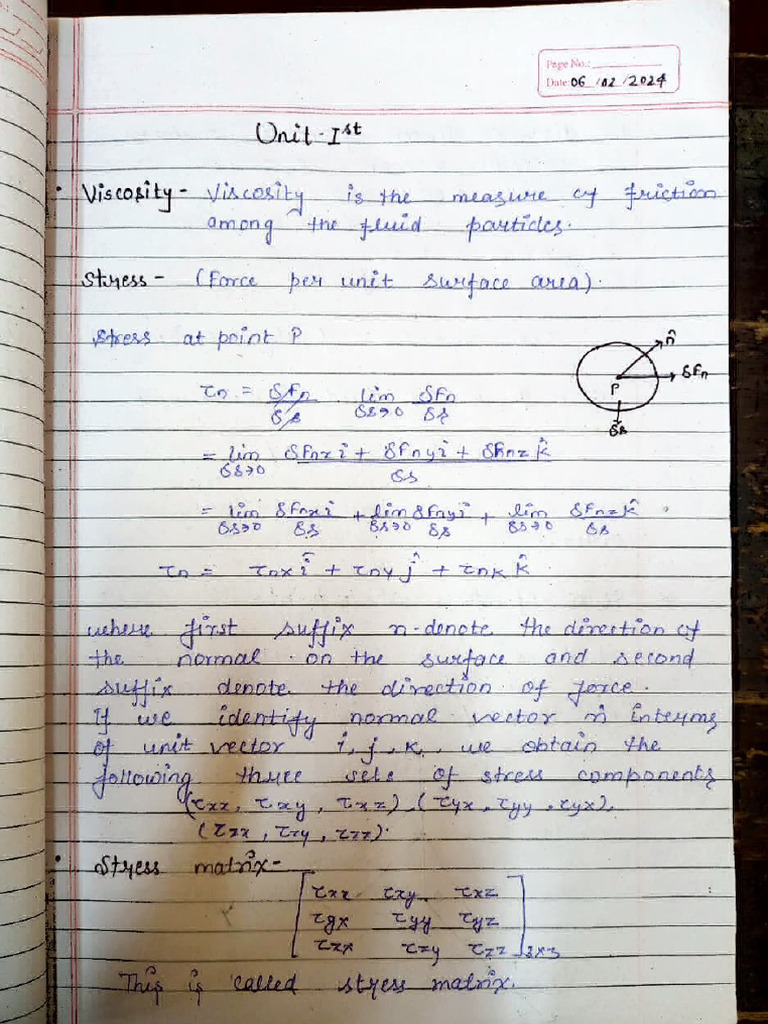 Page No.:
Date: 06 / 02 / 2024
Unit-Ist
Viscosity - Viscosity is the measure of friction
among the fluid particles.
Stress - (Force per unit surface area).
Stress at point P
n̂
δFn
P
δs
τn = δFn/δs lim δs→0 δFn/δs
= lim δs→0 δFnxi + δFnyi + δFnz k̂ / δs
= lim δs→0 δFnxi/δs + lim δs→0 δFnyi/δs + lim δs→0 δFnzk̂/δs
τn = τnx î + τny ĵ + τnk k̂
where first suffix n-denote the direction of
the normal on the surface and second
suffix denote the direction of force.
If we identify normal vector n̂ interms
of unit vector i, j, k, we obtain the
following three sets of stress components
(τxx, τxy, τxz), (τyx, τyy, τyx),
(τzx, τzy, τzz).
Stress matrix-
[ τxx τxy τxz
τyx τyy τyz
τzx τzy τzz ]3x3
This is called stress matrix.